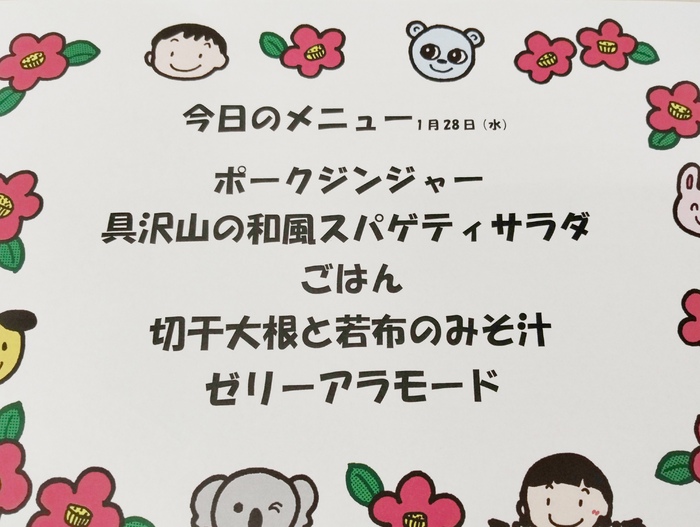 今日のメニュー1月28日（水）
ポークジンジャー
具沢山の和風スパゲティサラダ
ごはん
切干大根と若布のみそ汁
ゼリーアラモード